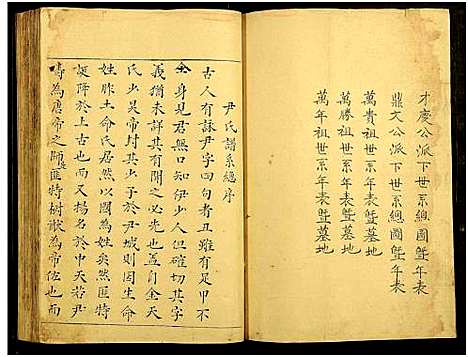 才慶公派下世系總圖暨年表
鼎文公派下世系總圖暨年表
萬貴祖世系年表暨墓地
萬勝祖世系年表暨墓地
萬年祖世系年表暨墓地
尹氏譜系總序
古人有詠尹字一句者丑雖有足甲不
全身見君無口知伊少人但確切其字
義猶未詳其有開之必先也蓋自金天
氏少昊帝封其少子於尹城則因生命
姓胙土命氏居然以國為姓矣然匪特
誕降於上古也而又揚名於中天若尹
壽為唐帝之師匪特樹猷為帝佐也而